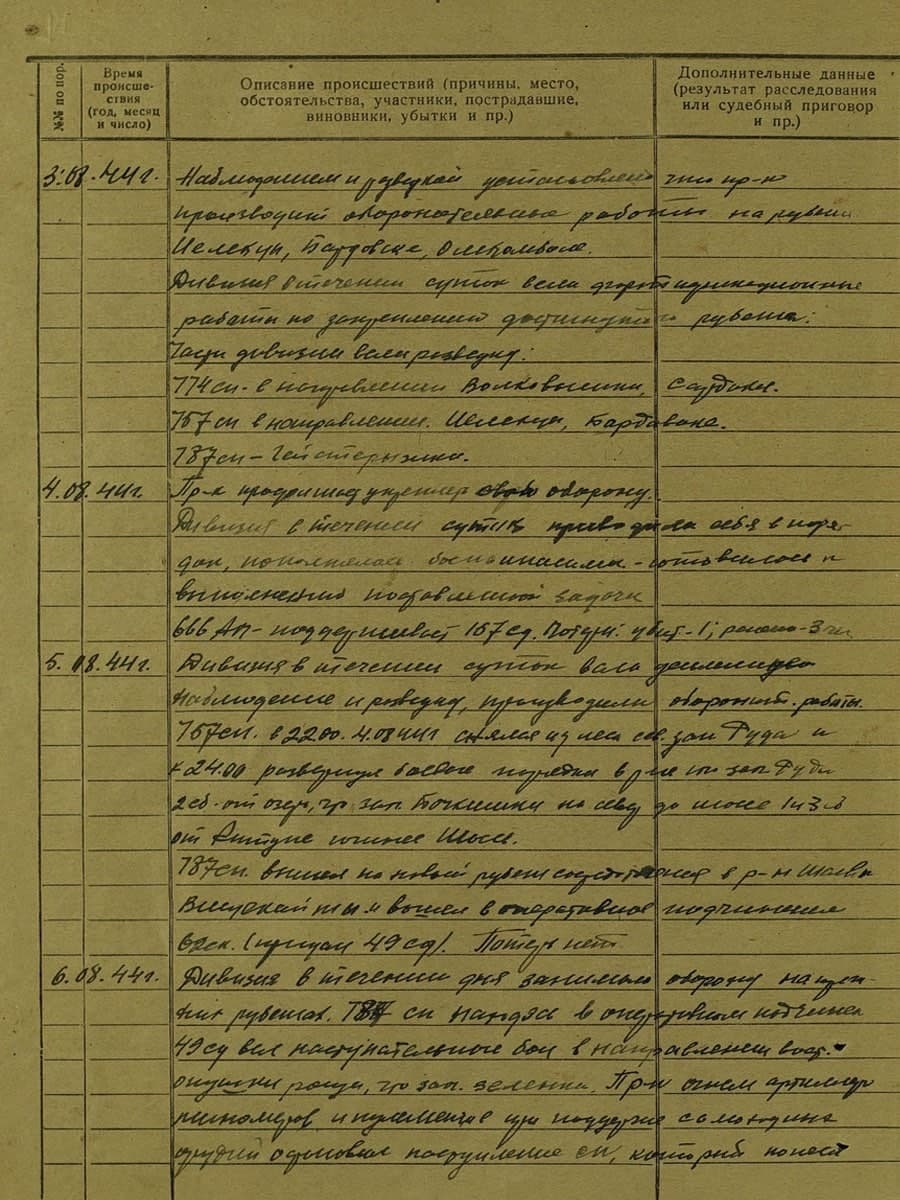 №№ по пор.
Время
происше-
ствия
(год, месяц
и число)
Описание происшествий (причины, место,
обстоятельства, участники, пострадавшие,
виновники, убытки и пр.)
Дополнительные данные
(результат расследования
или судебный приговор
и пр.)
3.08.44г. Наблюдением и разведкой установлено что пр-к
производит оборонительные работы на рубеже
Дивизия в течении суток вела фортификационные
работы по закреплению достигнутого рубежа.
Части дивизии вели разведку:
774 сп - в направлении Волковышки,
757 сп в направлении
787 сп -
4.08.44г. Пр-к продолжал укреплять свою оборону.
Дивизия в течении суток приводила себя в поря-
док, пополнялась боеприпасами - готовилась к
выполнению поставленной задачи
666 АП - поддерживает 157 сд. Потери: убит - 1; ранено - 3 чел
5.08.44г. Дивизия в течении суток вела
наблюдение и разведку, производили оборонит. работы.
757 сп. в 22.00 4.08.44г снялся из леса сев. зап Руда и
к 24.00 развернул боевые порядки в р-не зап Руда
2 сб - от озера, что зап. на север до шоссе 1 и 3 сб
от южнее шоссе.
787 сп. вышел на новый рубеж сосредоточения в р-н
и вошел в оперативное подчинение
62 ск. (придан 49 сд). Потерь нет
6.08.44г. Дивизия в течении дня занимала оборону на преж-
них рубежах. 787 сп находясь в оперативном подчинен
49 сд вел наступательные бои в направлении вост.
опушки рощи, что зап. Зеленка. Пр-к огнем артиллер
минометов и пулеметов при поддержке самоходных
орудий остановил наступление сп, который понест